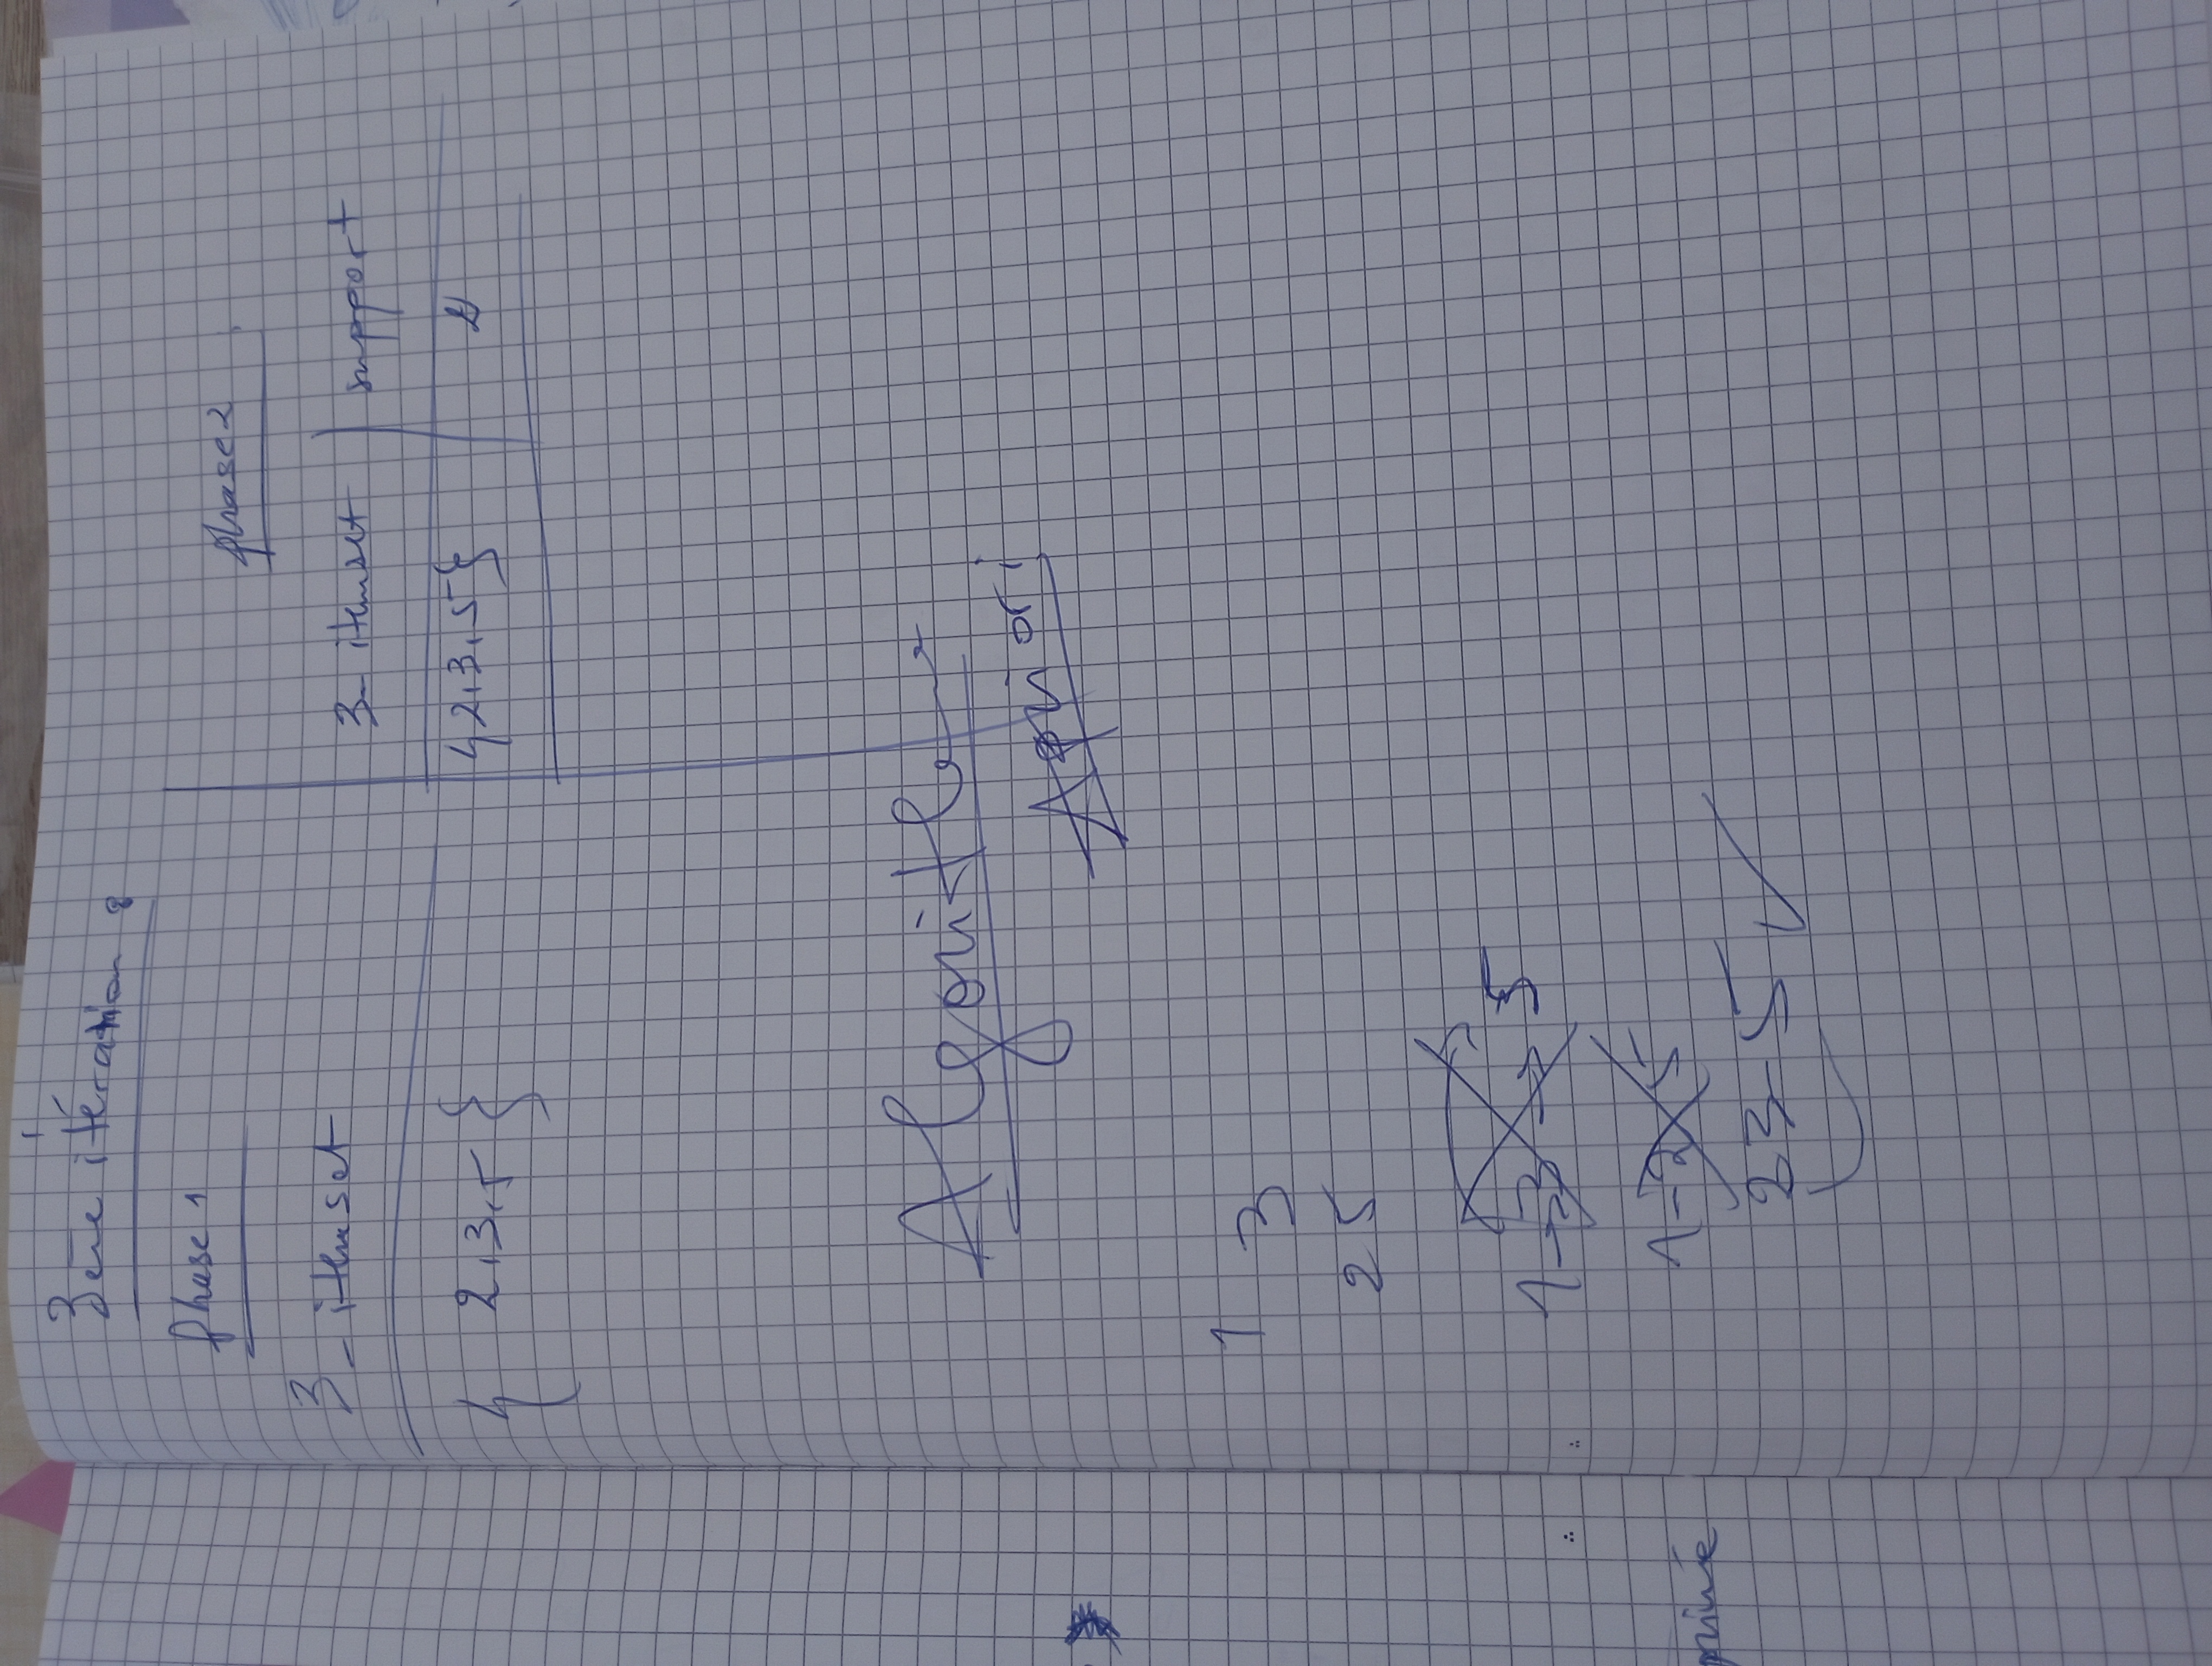 3ème itération :
Phase 1
3 - itemset
{ 2,3,5 }
phase 2
3 - itemset | support
{2,3,5} | 2
Algorithme
Apriori
1 3
2 5
1 → 3 → 5
1 - 2 5
2 3 - 5 ✓
primé